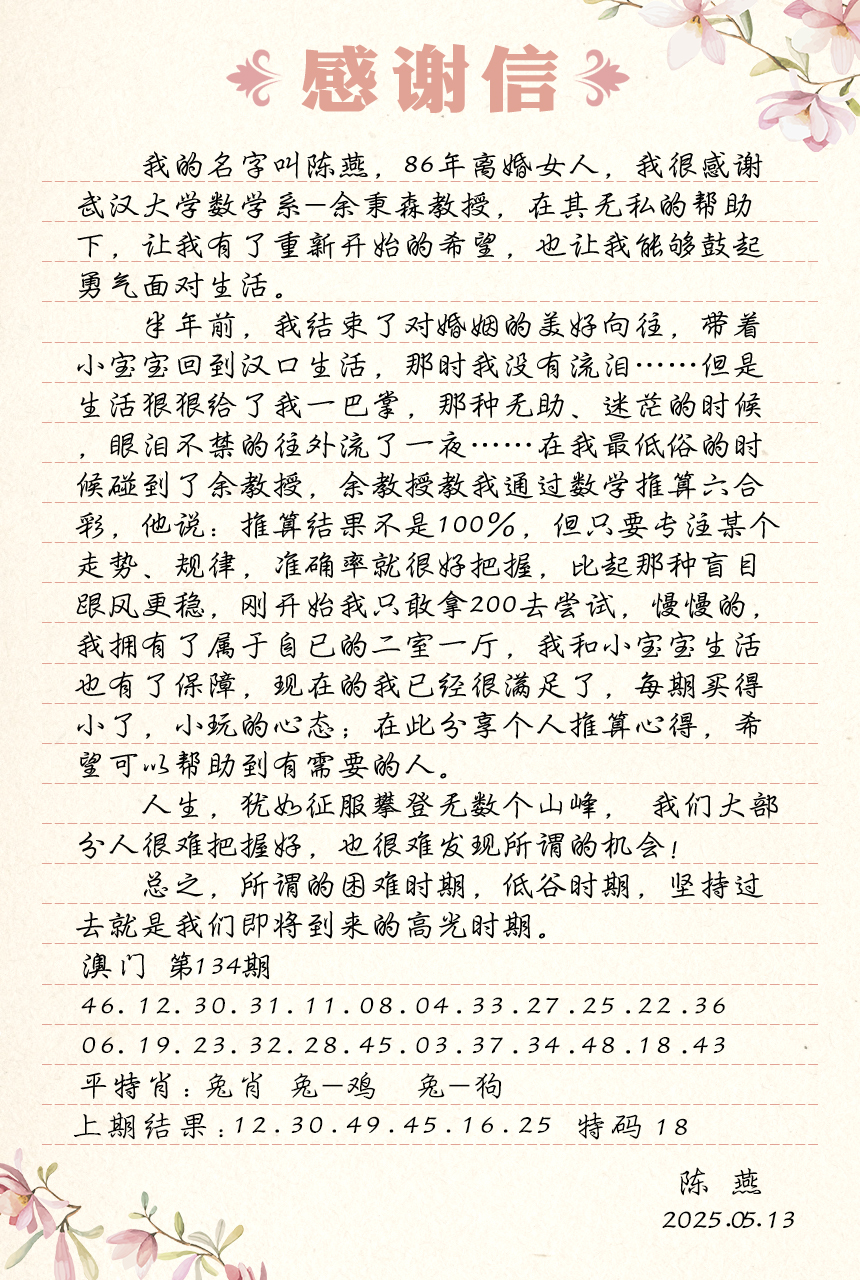 感谢信
我的名字叫陈燕，86年离婚女人，我很感谢
武汉大学数学系—余秉森教授，在其无私的帮助
下，让我有了重新开始的希望，也让我能够鼓起
勇气面对生活。
半年前，我结束了对婚姻的美好向往，带着
小宝宝回到汉口生活，那时我没有流泪……但是
生活狠狠给了我一巴掌，那种无助、迷茫的时候
，眼泪不禁的往外流了一夜……在我最低俗的时
候碰到了余教授，余教授教我通过数学推算六合
彩，他说：推算结果不是100%，但只要专注某个
走势、规律，准确率就很好把握，比起那种盲目
跟风更稳，刚开始我只敢拿200去尝试，慢慢的，
我拥有了属于自已的二室一厅，我和小宝宝生活
也有了保障，现在的我已经很满足了，每期买得
小了，小玩的心态；在此分享个人推算心得，希
望可以帮助到有需要的人。
人生，犹如征服攀登无数个山峰， 我们大部
分人很难把握好，也很难发现所谓的机会！
总之，所谓的困难时期，低谷时期，坚持过
去就是我们即将到来的高光时期。
澳门 第134期
46.12.30.31.11.08.04.33.27.25.22.36
06.19.23.32.28.45.03.37.34.48.18.43
平特肖：兔肖 兔—鸡 兔—狗
上期结果：12.30.49.45.16.25 特码 18
陈 燕
2025.05.13